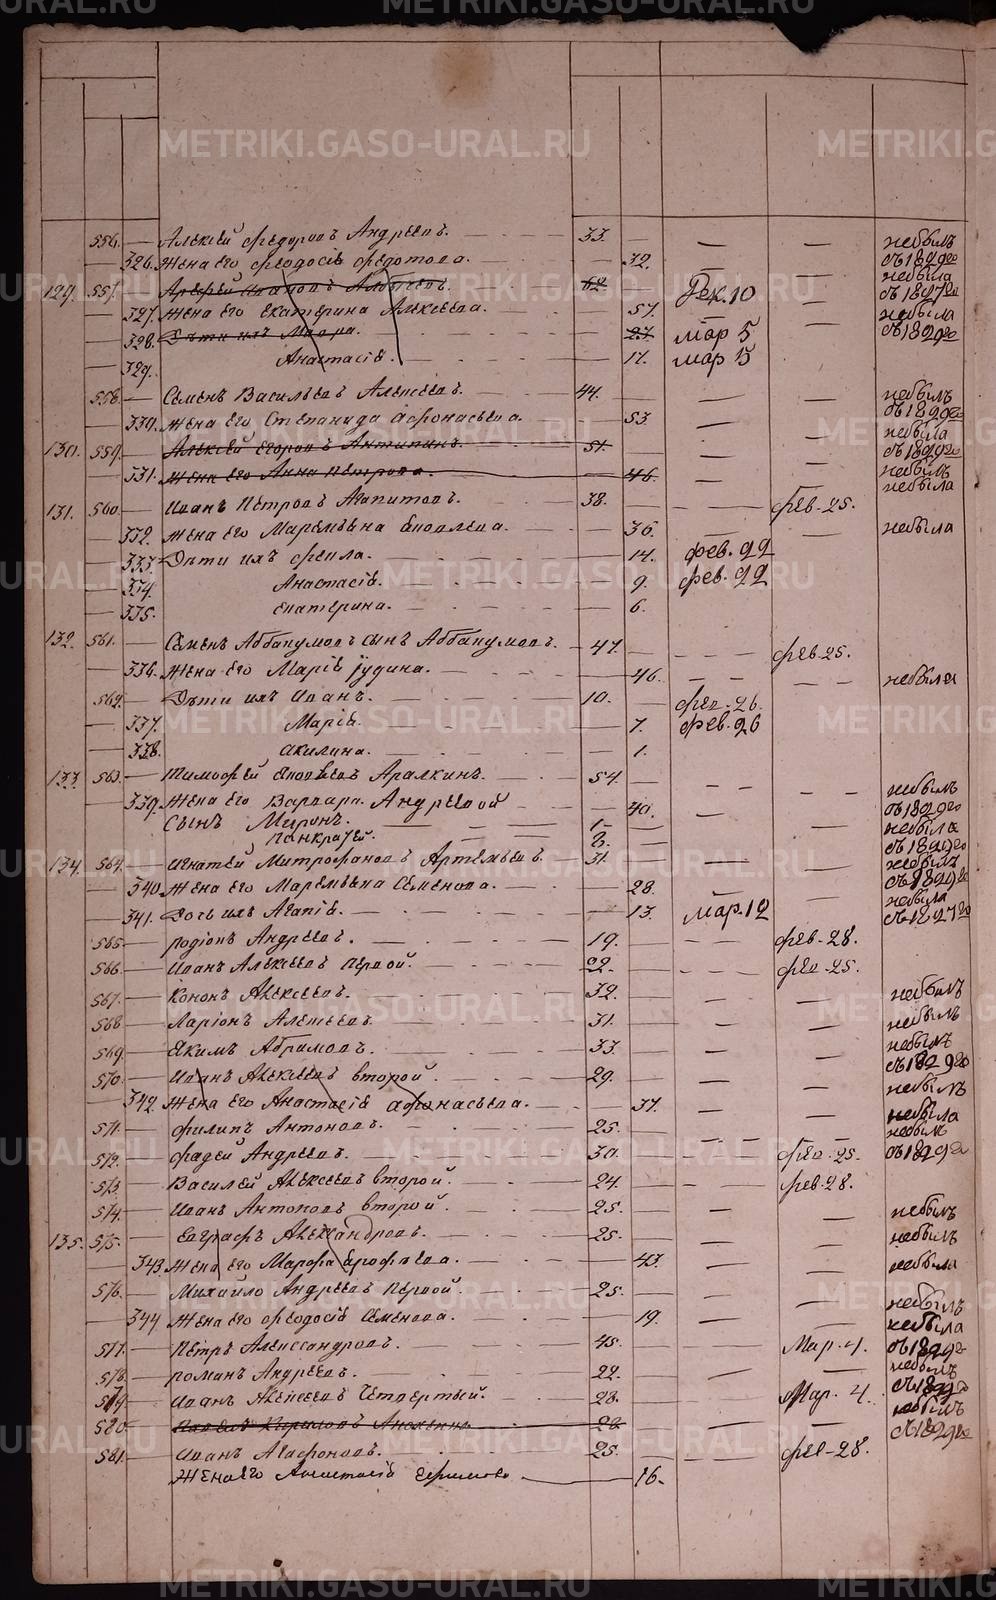 METRIKI.GASO-URAL.RU
556. — Алексей Федоров Андреевъ. 33. — — — небылъ
— 326. Жена его Феодосіе Федотова. — 32. — — съ 1829го небыла
129. 557. — Арефей Иванов 62 — Дек. 10 — съ 1827го
— 327. Жена его Екатерина Алексеева. — 57. — — небыла
— 328. Дѣти ихъ Мавра. — 27. мар 5 съ 1829го
— 329. Анастасіе. — 17. мар 15
558. — Семенъ Васильевъ Алексеевъ. 44. — — — небылъ
— 330. Жена его Степанида Афонасьева. — 53. — — съ 1829го небыла
130. 559. — Алексей Егоровъ Антипинъ. 51. — — — съ 1829го небылъ
— 331. Жена его Анна Петрова. — 46. — — небыла
131. 560. — Иванъ Петровъ Агапитовъ. 38. — — фев. 25.
— 332. Жена его Маремьяна Яковлева. — 36. — — небыла
— 333. Дѣти ихъ Фекла. — 14. фев. 22
— 334. Анастасіе. — 9. фев. 22
— 335. Екатерина. — 6.
132. 561. — Семенъ Аввакумовъ сынъ Аввакумовъ. 47. — — фев. 25.
— 336. Жена его Маріе Іудина. — 46. — — небыла
562. — Дѣти ихъ Иванъ. 10. — фев. 26.
— 337. Маріе. — 7. фев. 26
— 338. Акилина. — 1.
133. 563. — Тимофей Яковлевъ Аралкинъ. 54. — — — небылъ
— 339. Жена его Варвара Андреевой — 40. — — съ 1829го небыла
Сынъ Миронъ. 1 —
Панкратей. 3. съ 1829го
134. 564. — Игнатей Митрофановъ Артемьевъ. 31. — — — небылъ
— 340. Жена его Маремьяна Семенова. — 28. — — съ 1829го небыла
— 341. Дочь ихъ Агапіе. — 13. мар. 12 съ 1827го
565. — Родіонъ Андреевъ. 19. — — фев. 28.
566. — Иванъ Алексеевъ Первой. 32. — — фев. 25.
567. — Кононъ Алексеевъ. 32. — — — небылъ
568 — Ларіонъ Алексеевъ. 31. — — — небылъ
569. — Якимъ Абрамовъ. 33. — — — небылъ съ 1829го
570. — Иванъ Алексеевъ второй. 29. — — — небылъ
— 342. Жена его Анастасіе Афонасьева. — 37. — — небыла
571. — Филипъ Антоновъ. 25. — — — небылъ
572. — Фадей Андреевъ. 30. — — фев. 25. съ 1829го
573. — Василей Алексеевъ второй. 24. — — фев. 28.
574. — Иванъ Антоновъ второй. 25. — — — небылъ
135. 575. — Евграфъ Александровъ. 25. — — — небылъ
— 343. Жена его Марфа Ерофеева. — 43. — — небыла
576. — Михайло Андреевъ Первой. 25. — — — небылъ
— 344 Жена его Феодосіе Семенова. — 19. — — небыла
577. — Петръ Александровъ. 45. — — Мар. 4. съ 1829го
578. — Романъ Андреевъ. 22. — — — небылъ
579. — Иванъ Алексеевъ Четвертый. 28. — — Мар. 4. съ 1829го
580. — 22. — — — небылъ съ 1829го
581. — Иванъ Агафоновъ. 25. — — фев. 28.
Жена его Анастасіе — 16.